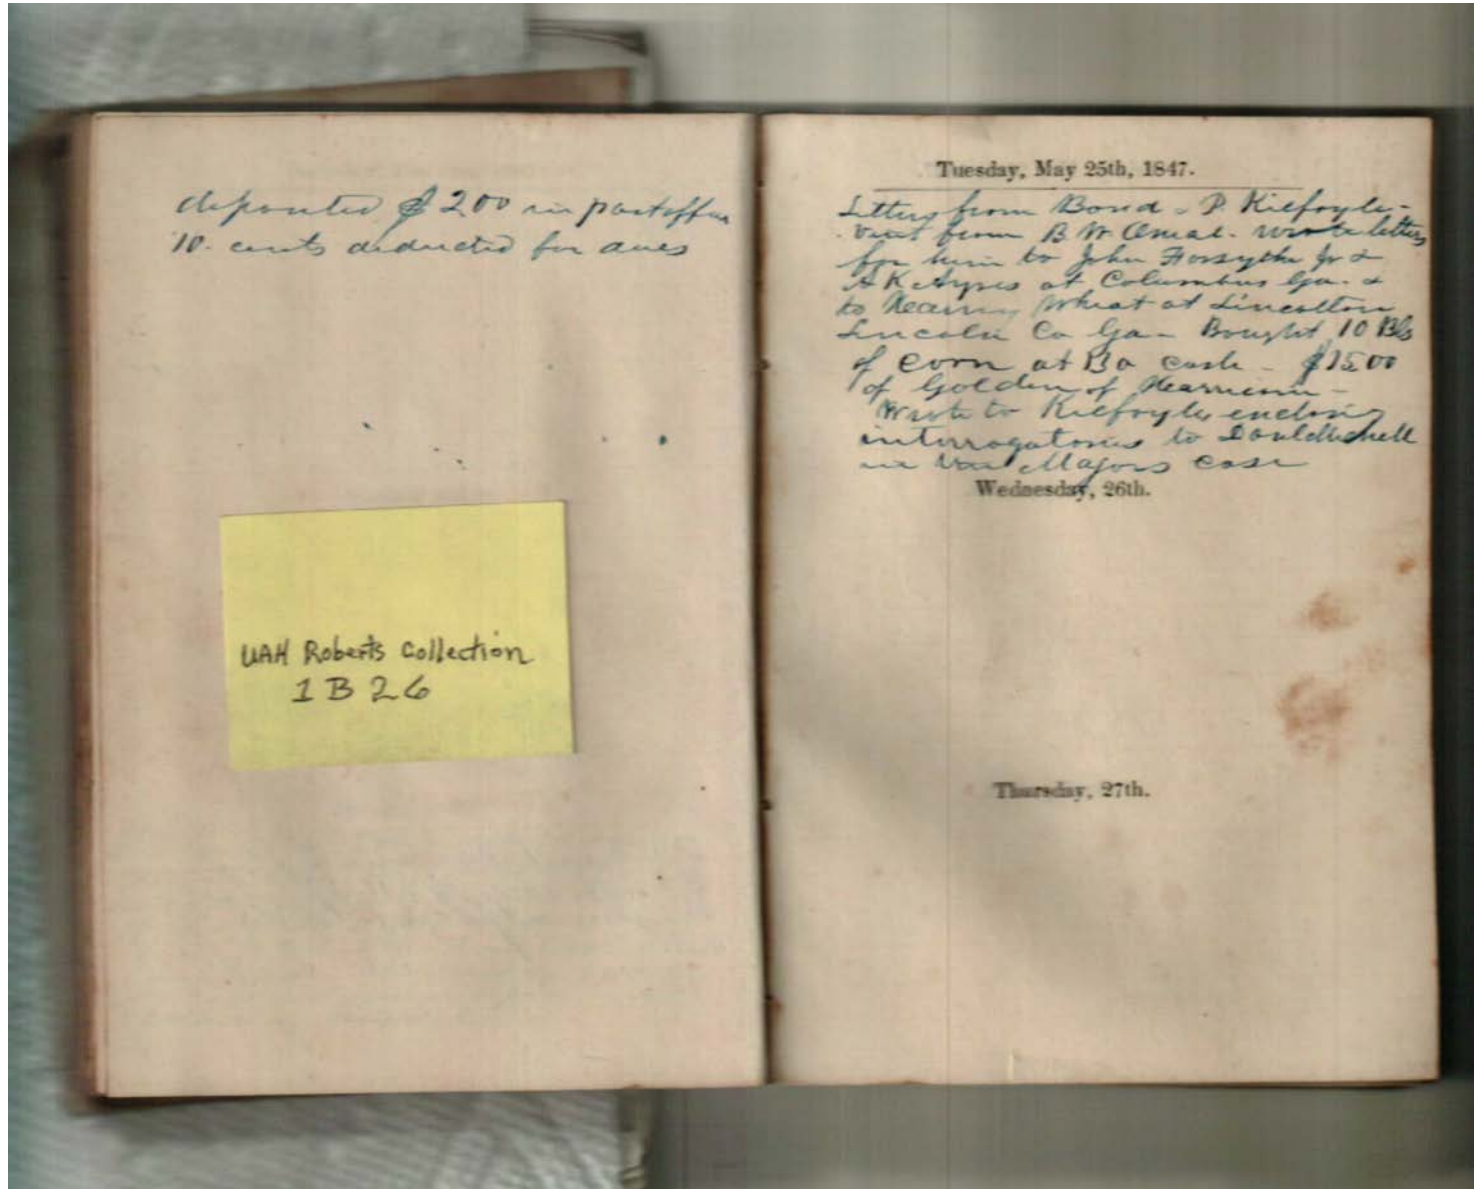 deposited $200 in postoffice
10 cents deducted for dues
UAH Roberts Collection
1 B 26
Tuesday, May 25th, 1847.
Letters from Bond - P. Kilfoyle -
visit from B W wrote letters
for him to John Forsythe Jr &
A K Ayres at Columbus Ga. &
to Wheat at Lincolton
Lincoln Co Ga - Bought 10 Bls
of corn at cash - $15 00
of Golden of
Wrote to Kilfoyle enclosing
interrogatories to
in Majors case
Wednesday, 26th.
Thursday, 27th.